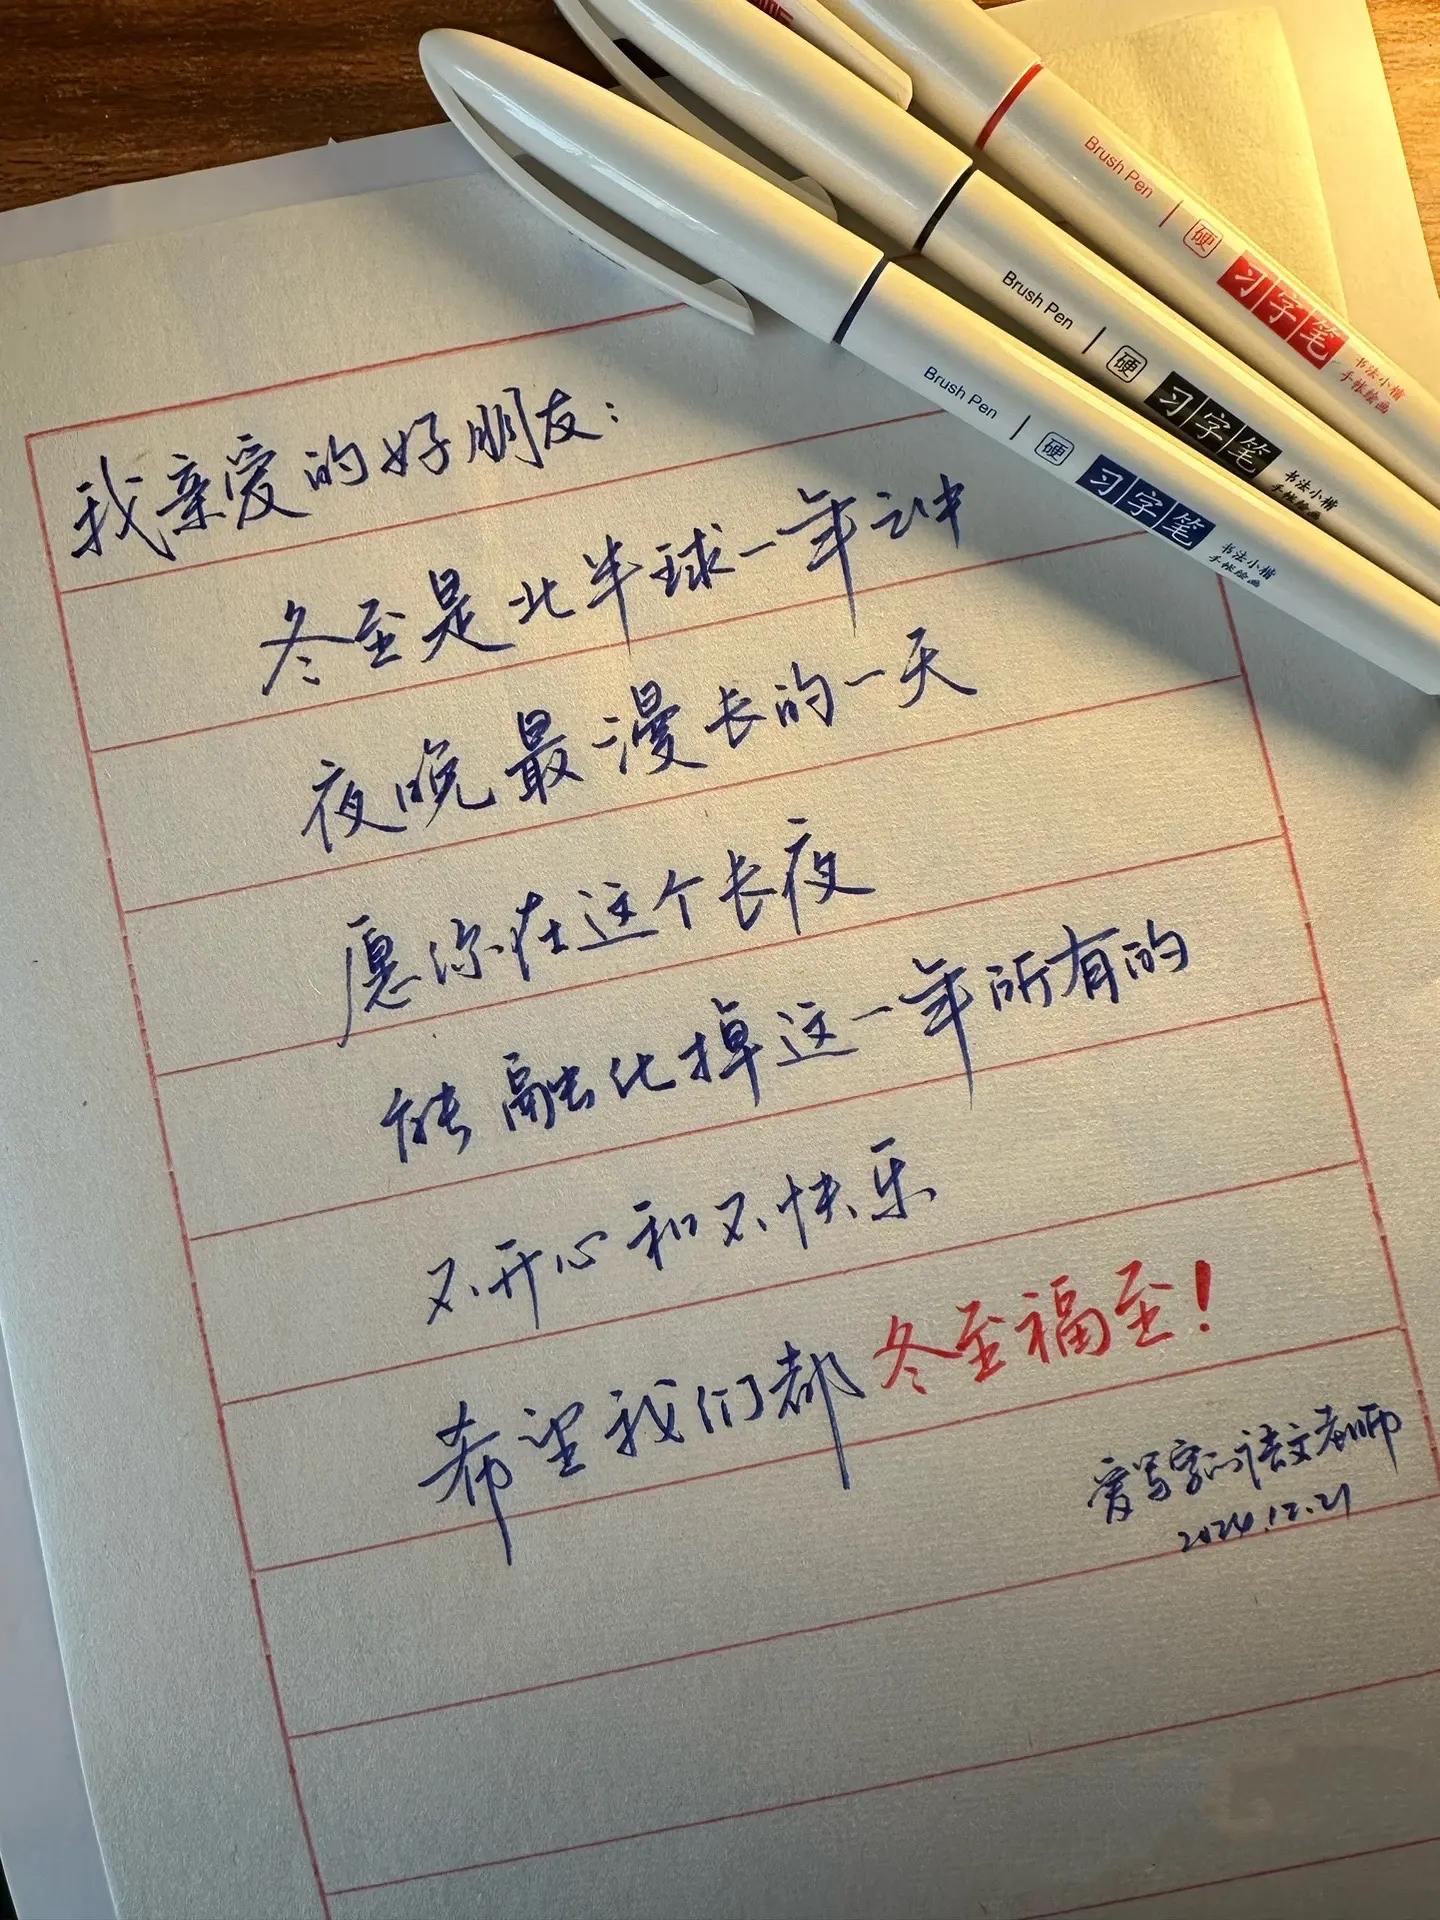 Brush Pen 硬 习字笔 书法小楷 手帐绘画
Brush Pen 硬 习字笔 书法小楷 手帐绘画
Brush Pen 硬 习字笔 书法小楷 手帐绘画
我亲爱的好朋友：
冬至是北半球一年之中
夜晚最漫长的一天
愿你在这个长夜
能融化掉这一年所有的
不开心和不快乐
希望我们都冬至福至！
爱写字的语文老师
2024.12.21